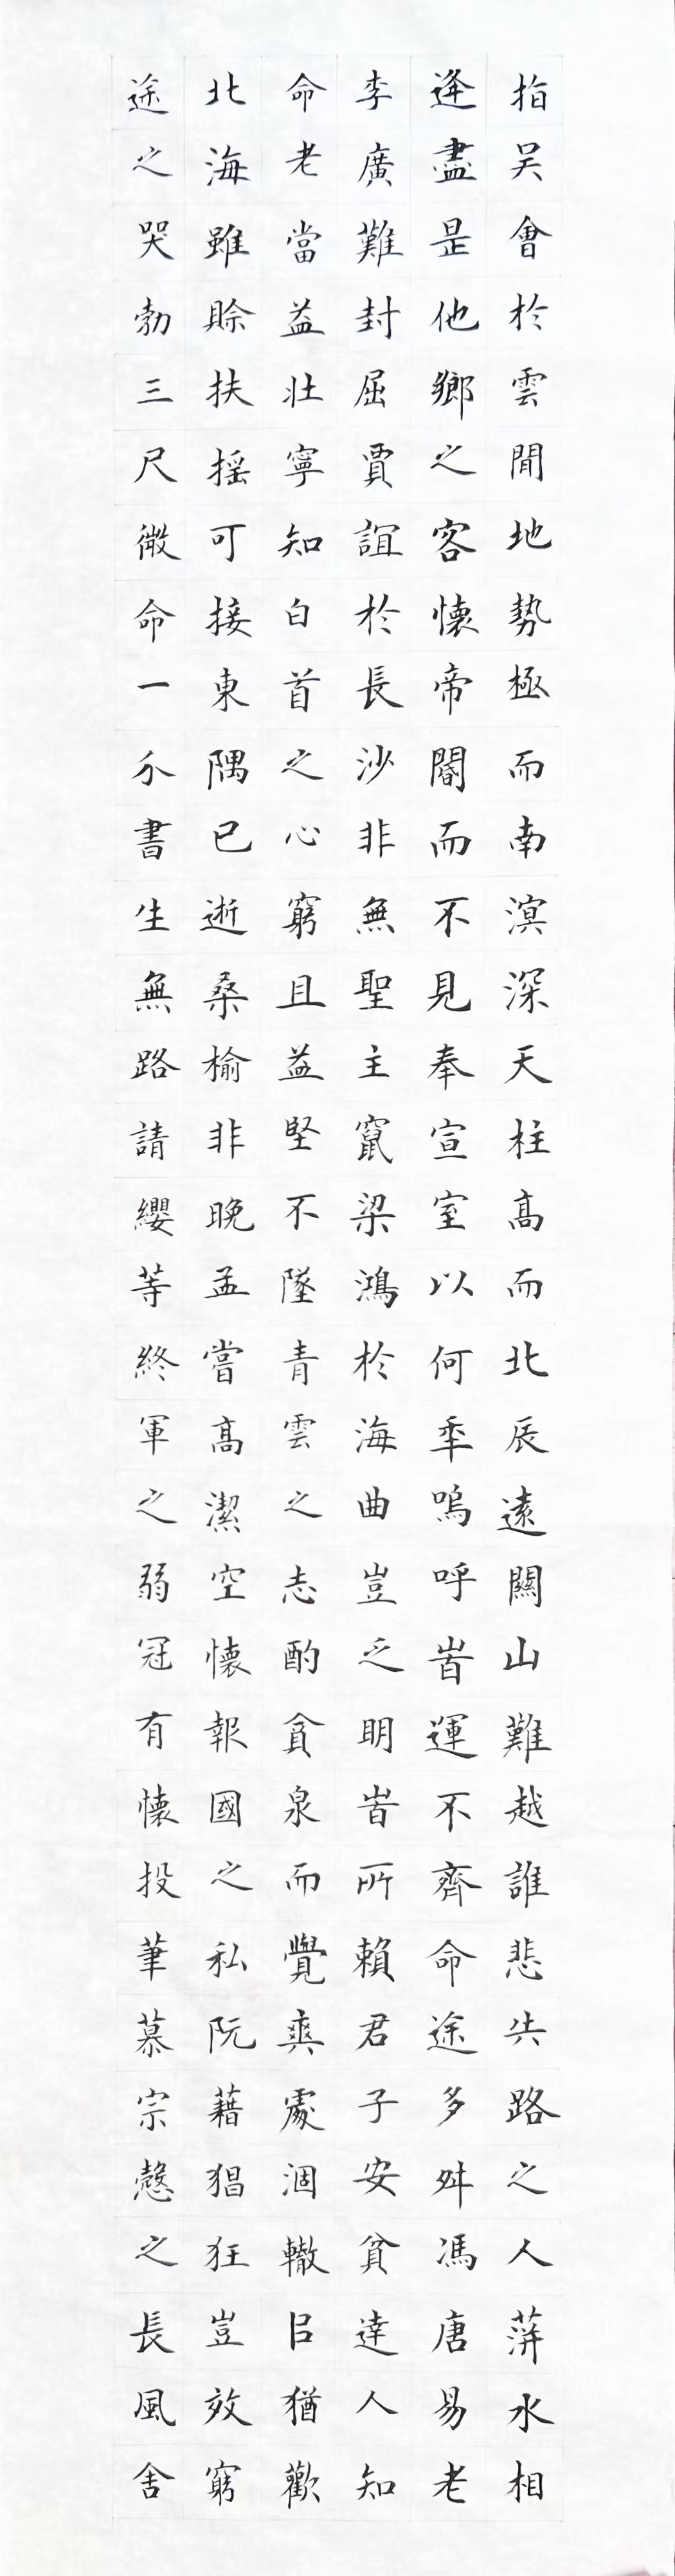 指吴會於雲間地勢極而南溟深天柱髙而北辰遠關山難越誰悲失路之人萍水相
逢盡是他鄉之客懷帝閽而不見奉宣室以何年嗚呼旹運不齊命途多舛馮唐易老
李廣難封屈賈誼於長沙非無聖主竄梁鴻於海曲豈乏明旹所賴君子安貧達人知
命老當益壯寧知白首之心窮且益堅不墜青雲之志酌貪泉而覺爽處涸轍㠯猶歡
北海雖賒扶摇可接東隅已逝桑榆非晚孟嘗髙潔空懷報國之私阮藉猖狂豈效窮
途之哭勃三尺微命一介書生無路請纓等終軍之弱冠有懷投筆慕宗慤之長風舍